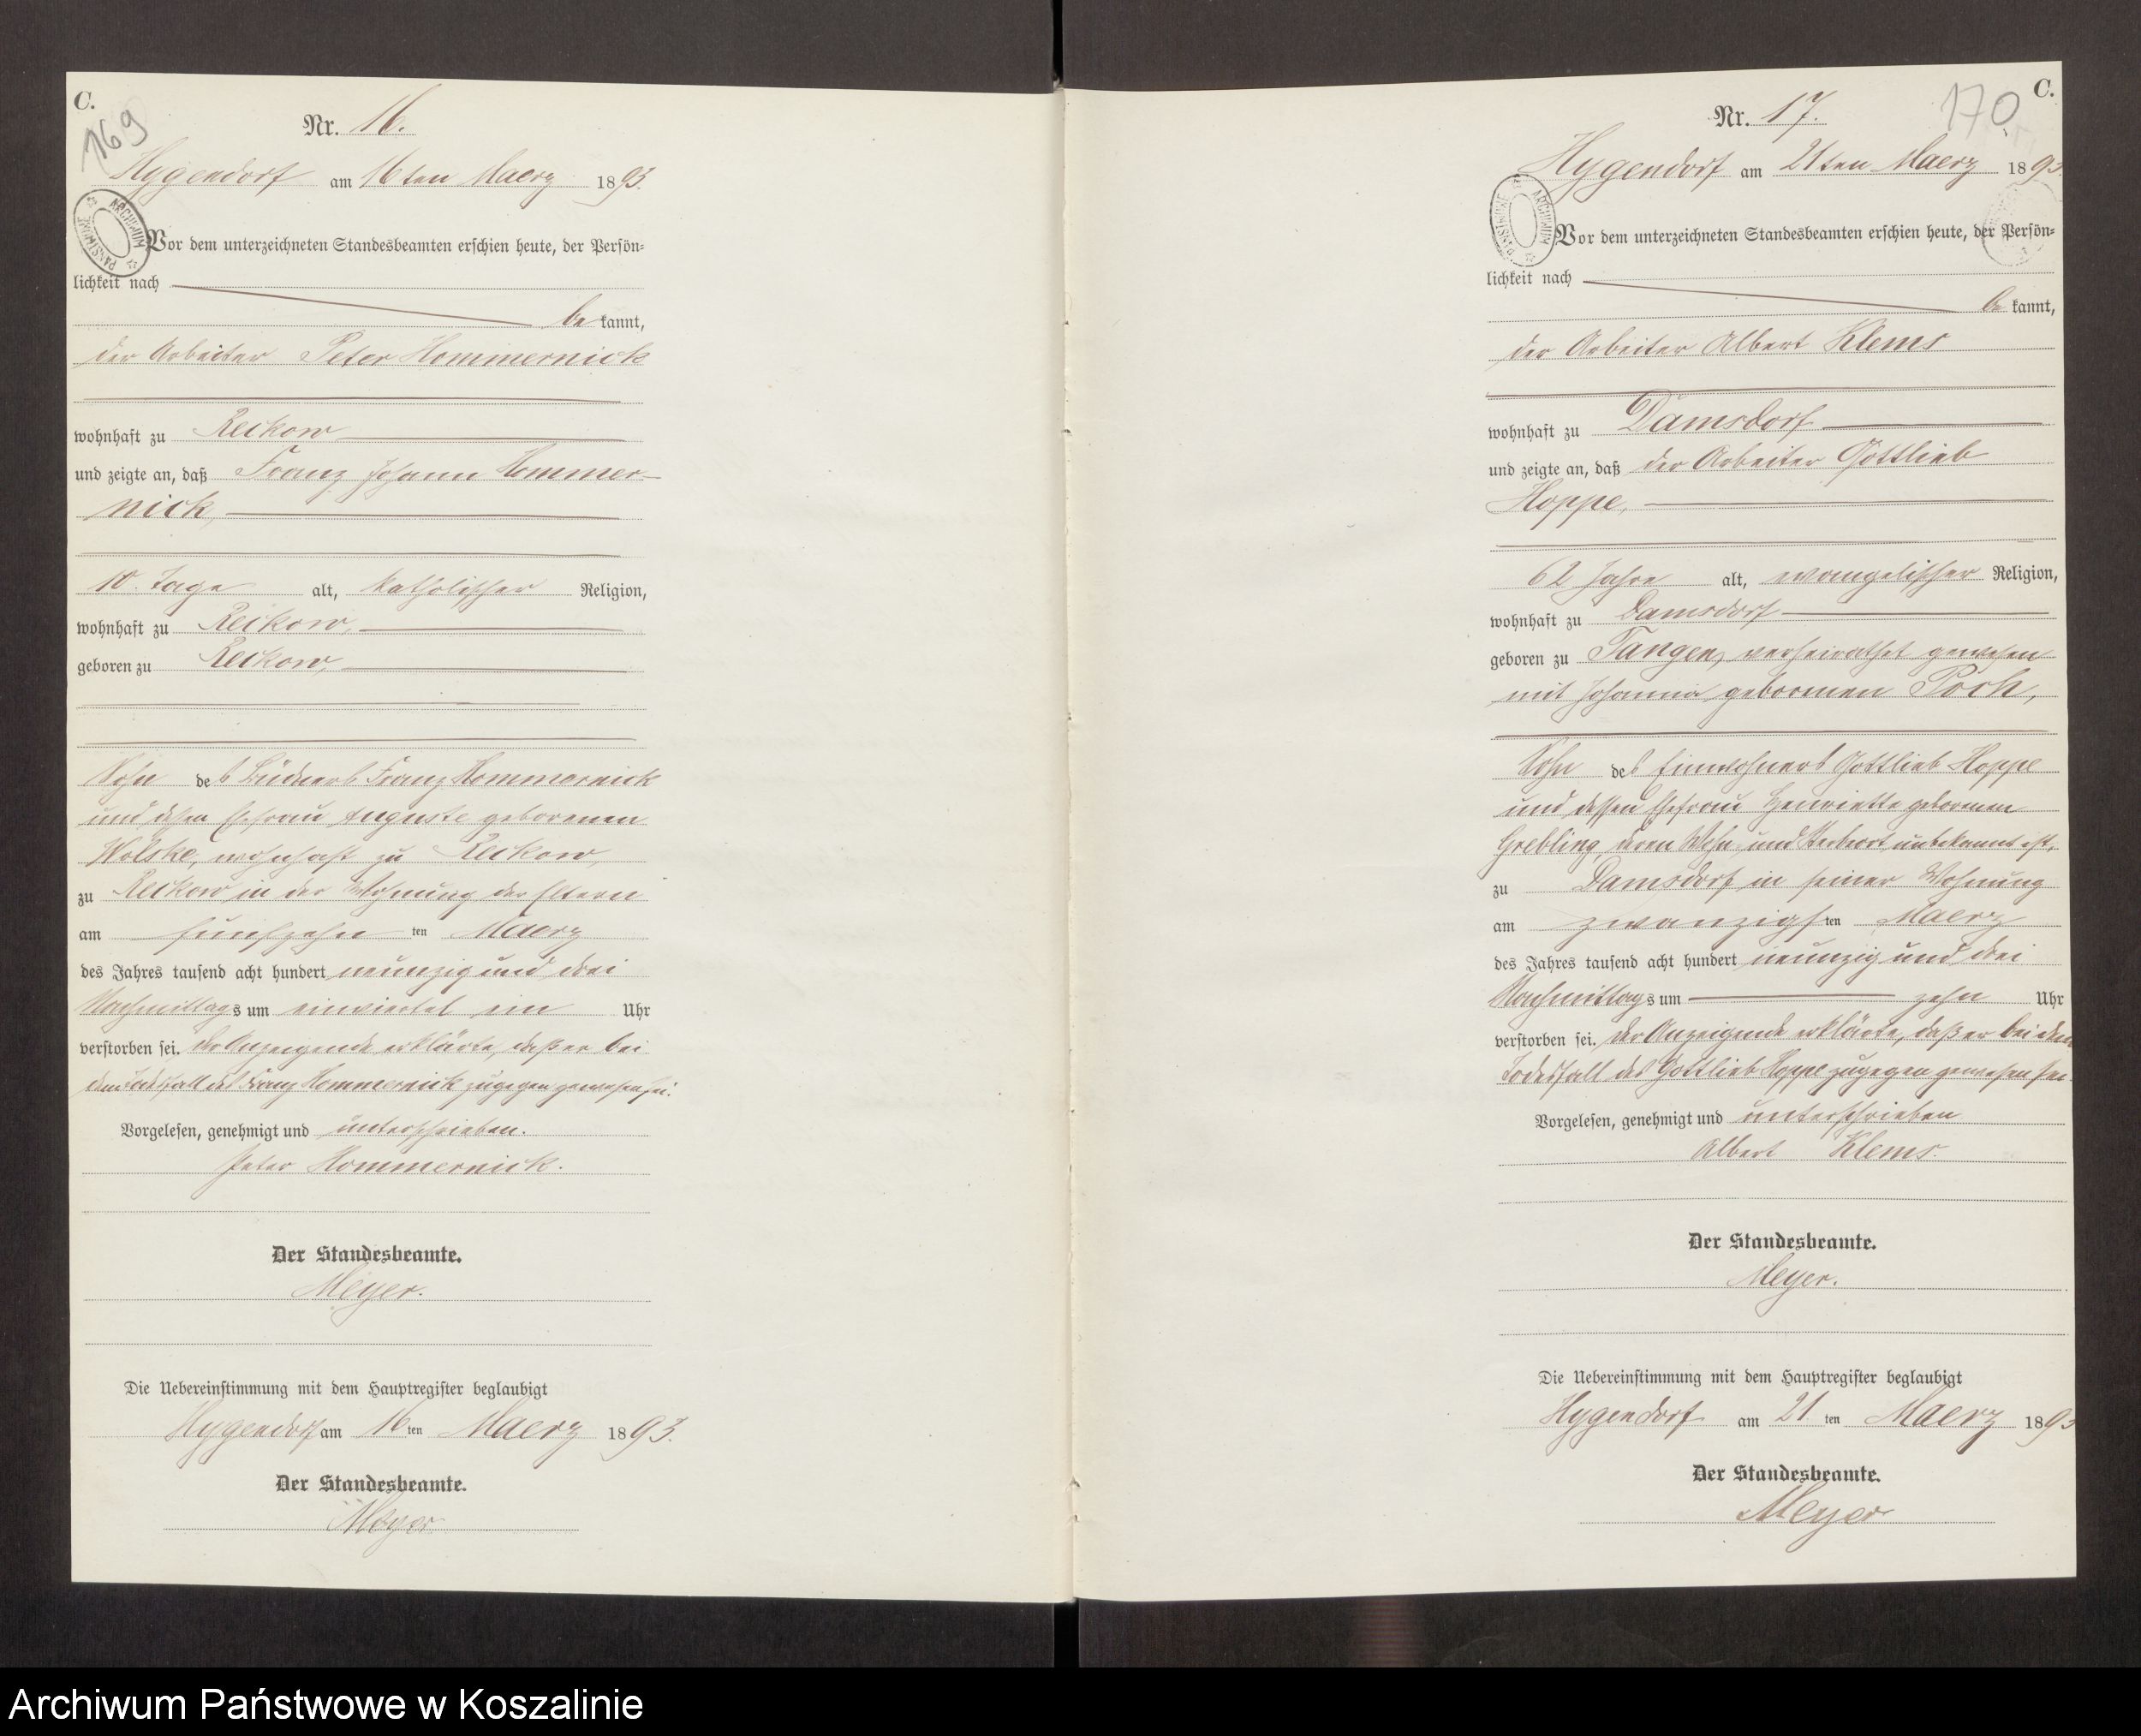 C.
169
Nr. 16.
Hygendorf am 16ten Maerz 1893.
ARCHIWUM PAŃSTWOWE
Vor dem unterzeichneten Standesbeamten erschien heute, der Persön-
lichkeit nach
be kannt,
der Arbeiter Peter Hommernick
wohnhaft zu Reckow
und zeigte an, daß Franz Johann Hommer-
nick,
10 Tage alt, katholischer Religion,
wohnhaft zu Reckow,
geboren zu Reckow,
Sohn des Büdners Franz Hommernick
und dessen Ehefrau Auguste geborenen
Wolske, wohnhaft zu Reckow,
zu Reckow in der Wohnung der Eltern
am fünfzehn ten Maerz
des Jahres tausend acht hundert neunzig und drei
Nachmittags um einviertel ein Uhr
verstorben sei. Der Anzeigende erklärte, daß er bei
dem Todesfall des Franz Hommernick zugegen gewesen sei.
Vorgelesen, genehmigt und unterschrieben.
Peter Hommernick.
Der Standesbeamte.
Meyer.
Die Uebereinstimmung mit dem Hauptregister beglaubigt
Hygendorf am 16 ten Maerz 1893.
Der Standesbeamte.
Meyer
C.
170
Nr. 17.
Hygendorf am 21ten Maerz 1893.
ARCHIWUM PAŃSTWOWE
Vor dem unterzeichneten Standesbeamten erschien heute, der Persön-
lichkeit nach
be kannt,
der Arbeiter Albert Klems
wohnhaft zu Damsdorf
und zeigte an, daß der Arbeiter Gottlieb
Hoppe,
62 Jahre alt, evangelischer Religion,
wohnhaft zu Damsdorf
geboren zu Tangen, verheirathet gewesen
mit Johanna geborenen Poch,
Sohn des Einwohners Gottlieb Hoppe
und dessen Ehefrau Henriette geborenen
Grebling, deren Wohn- und Sterbeort unbekannt ist,
zu Damsdorf in seiner Wohnung
am zwanzigsten Maerz
des Jahres tausend acht hundert neunzig und drei
Nachmittags um zehn Uhr
verstorben sei. Der Anzeigende erklärte, daß er bei dem
Todesfall des Gottlieb Hoppe zugegen gewesen sei.
Vorgelesen, genehmigt und unterschrieben
Albert Klems.
Der Standesbeamte.
Meyer.
Die Uebereinstimmung mit dem Hauptregister beglaubigt
Hygendorf am 21 ten Maerz 1893
Der Standesbeamte.
Meyer
Archiwum Państwowe w Koszalinie